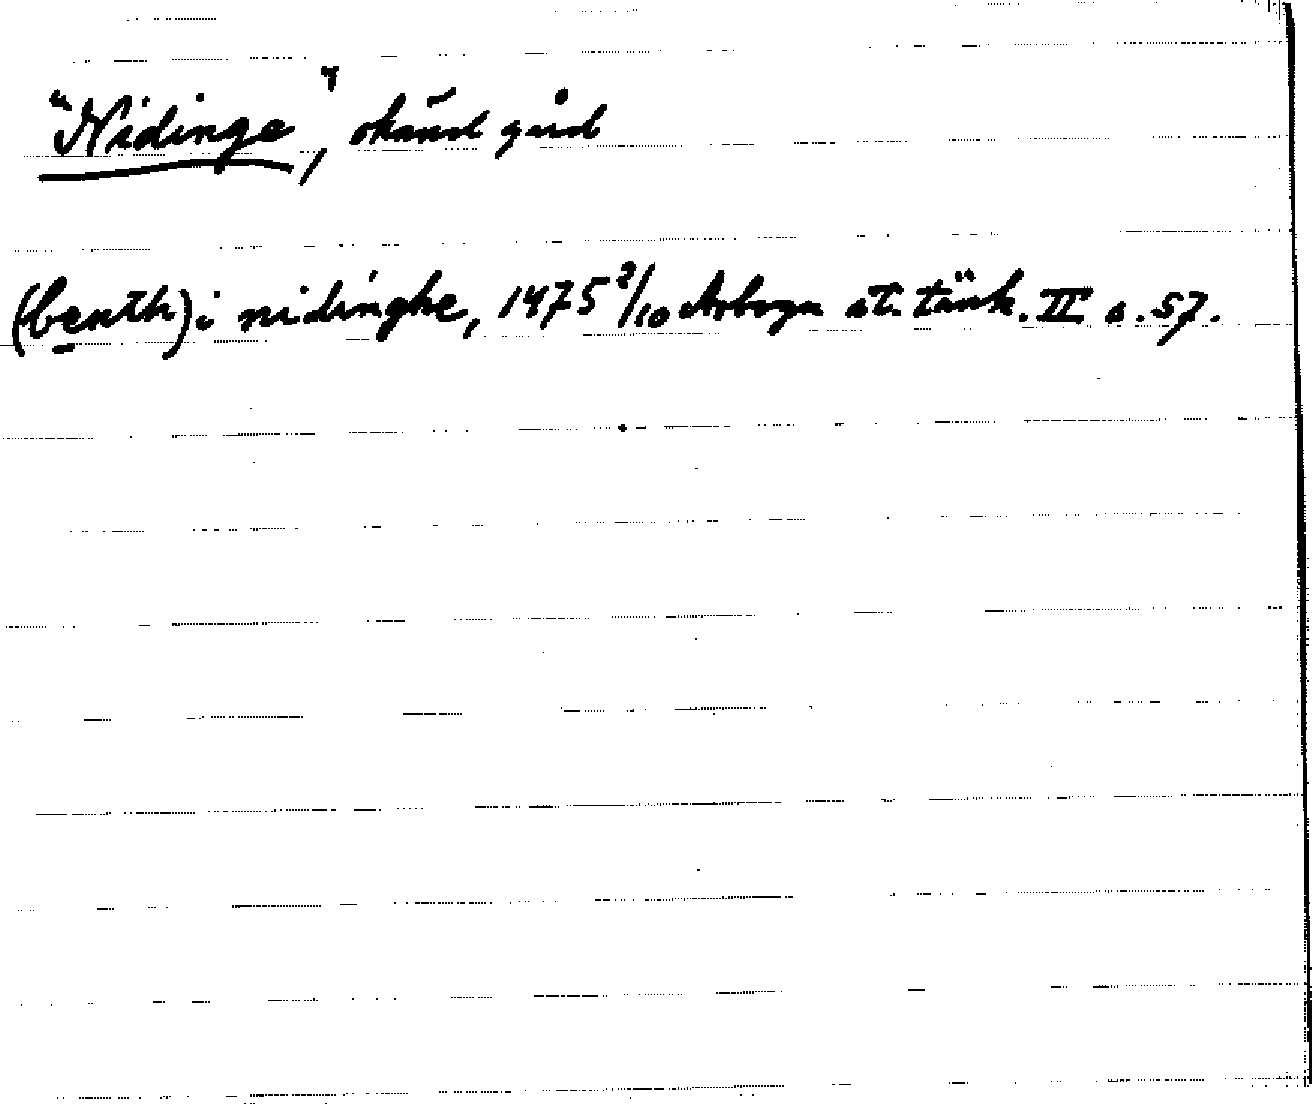 "Nidinge", okänd gård
(benth) i nidinghe, 1475 2/10 Arboga st. tänk. II s. 57.